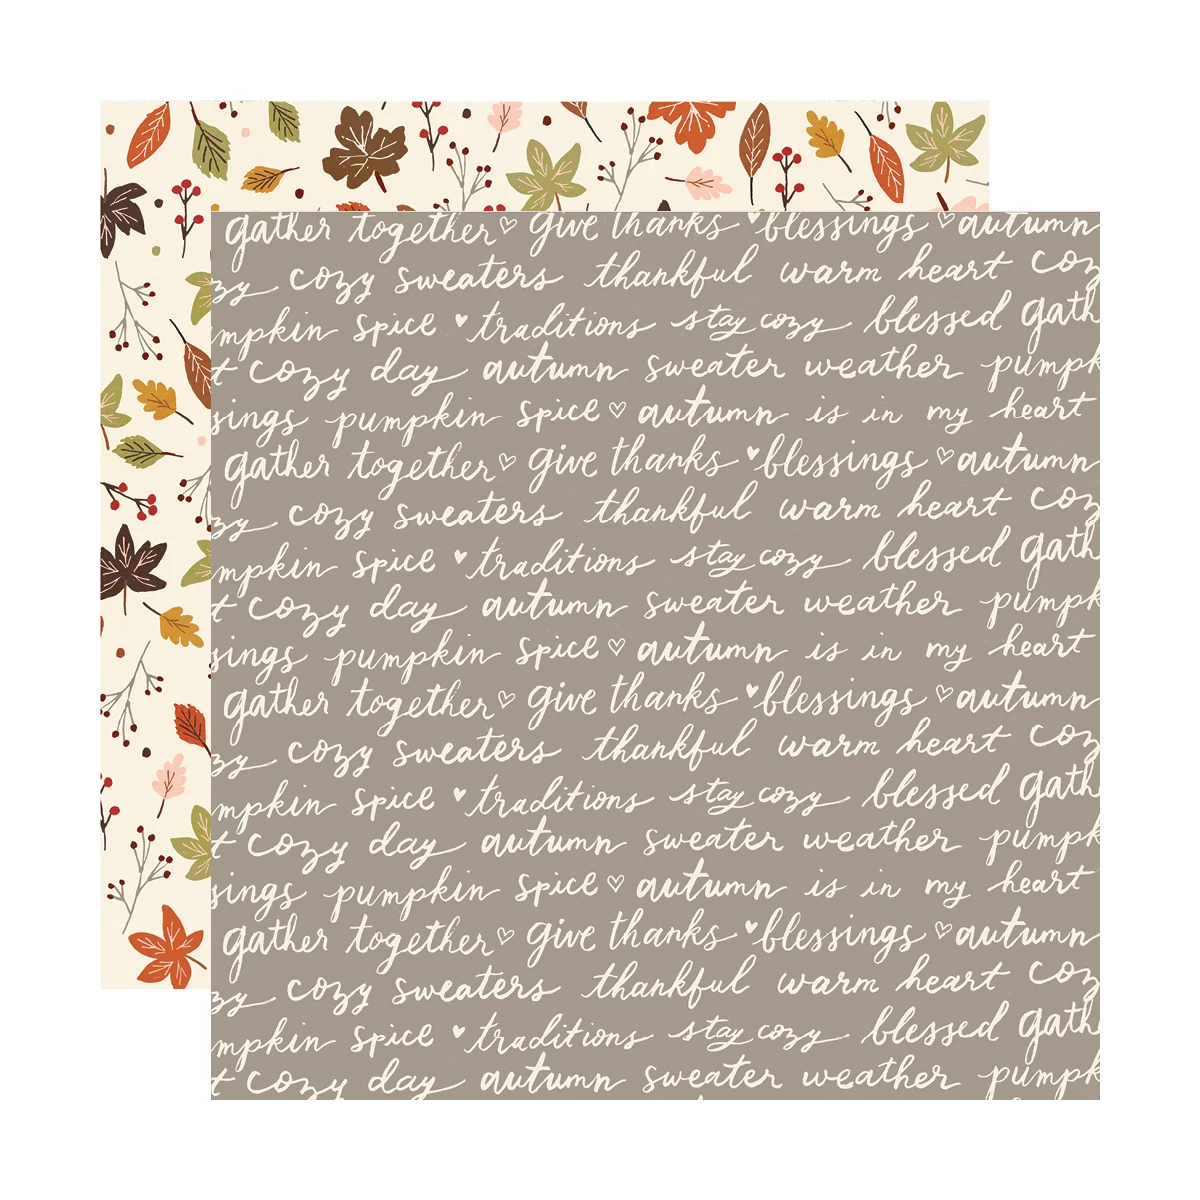 gather together give thanks blessings autumn
zy cozy sweaters thankful warm heart coz
mpkin spice traditions stay cozy blessed gath
t cozy day autumn sweater weather pumpk
sings pumpkin spice autumn is in my heart
gather together give thanks blessings autumn
zy cozy sweaters thankful warm heart coz
mpkin spice traditions stay cozy blessed gath
t cozy day autumn sweater weather pumpk
sings pumpkin spice autumn is in my heart
gather together give thanks blessings autumn
zy cozy sweaters thankful warm heart coz
mpkin spice traditions stay cozy blessed gath
t cozy day autumn sweater weather pumpk
sings pumpkin spice autumn is in my heart
gather together give thanks blessings autumn
zy cozy sweaters thankful warm heart coz
mpkin spice traditions stay cozy blessed gath
t cozy day autumn sweater weather pumpk